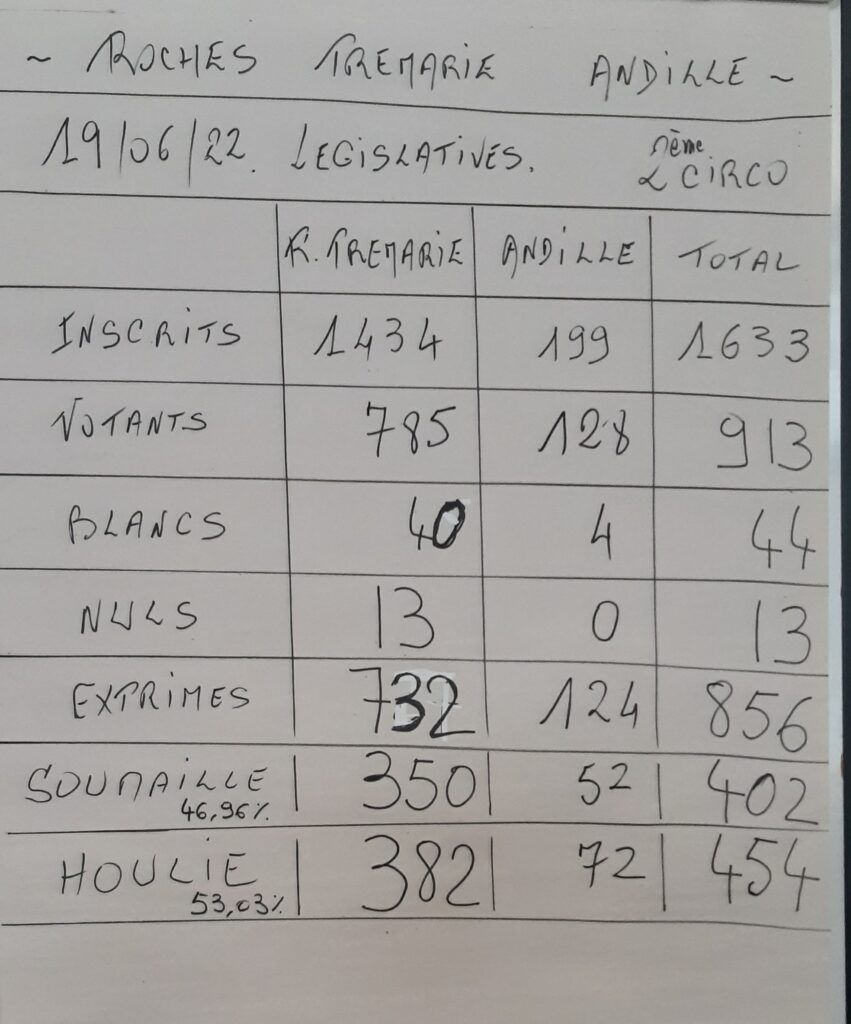 ~ ROCHES TREMARIE ANDILLE ~
19/06/22. LEGISLATIVES. 2ème CIRCO
R. TREMARIE ANDILLE TOTAL
INSCRITS 1434 199 1633
VOTANTS 785 128 913
BLANCS 40 4 44
NULS 13 0 13
EXPRIMES 732 124 856
SOUMAILLE 350 52 402
46,96%
HOULIE 382 72 454
53,03%